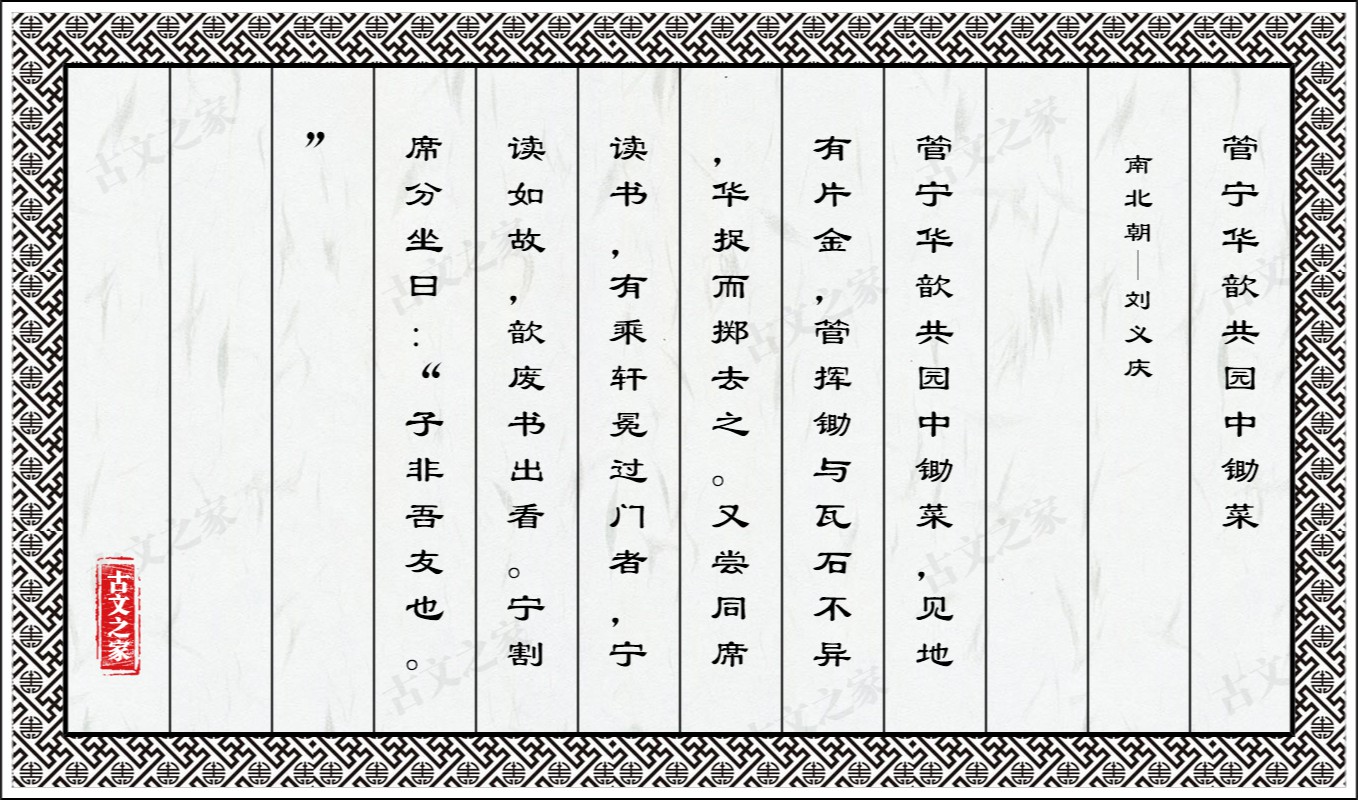 管宁华歆共园中锄菜
南北朝—刘义庆
管宁华歆共园中锄菜,见地
有片金,管挥锄与瓦石不异
,华捉而掷去之。又尝同席
读书,有乘轩冕过门者,宁
读如故,歆废书出看。宁割
席分坐曰:“子非吾友也。
”
古文之家